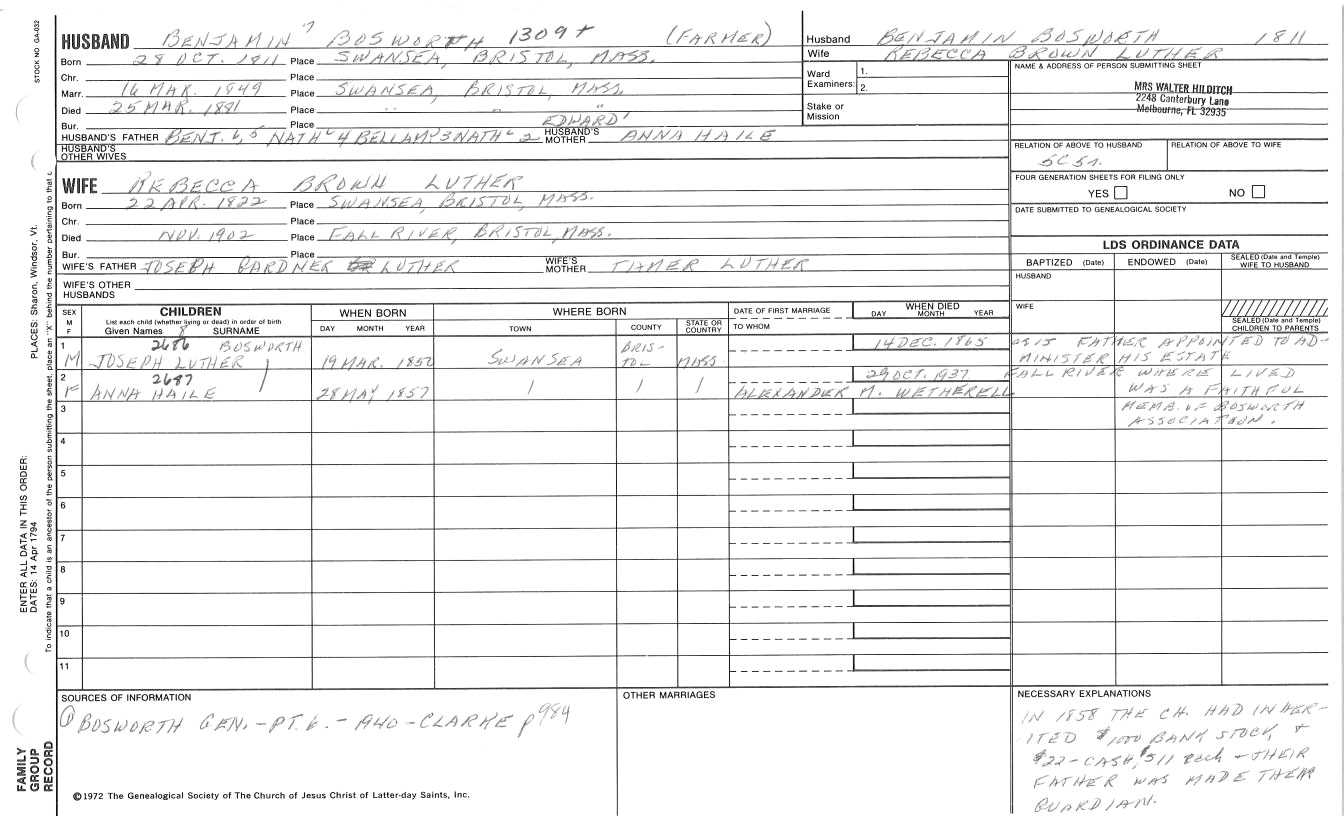 STOCK NO. GA-032
HUSBAND BENJAMIN 7 BOSWORTH 1309+ (FARMER)
Born 28 OCT. 1811 Place SWANSEA, BRISTOL, MASS.
Chr. Place
Marr. 16 MAR. 1849 Place SWANSEA, BRISTOL, MASS.
Died 25 MAR. 1881 Place " " "
Bur. Place
HUSBAND'S FATHER BENJ. 6, 5 NATHL 4 BELLAMY 3 NATHL 2 EDWARD 1 HUSBAND'S MOTHER ANNA HAILE
HUSBAND'S OTHER WIVES
Husband BENJAMIN BOSWORTH 1811
Wife REBECCA BROWN LUTHER
Ward Examiners: 1. 2.
Stake or Mission
NAME & ADDRESS OF PERSON SUBMITTING SHEET
MRS WALTER HILDITCH
2248 Canterbury Lane
Melbourne, FL 32935
RELATION OF ABOVE TO HUSBAND RELATION OF ABOVE TO WIFE
FOUR GENERATION SHEETS FOR FILING ONLY
YES NO
DATE SUBMITTED TO GENEALOGICAL SOCIETY
WIFE REBECCA BROWN LUTHER
Born 22 APR. 1822 Place SWANSEA, BRISTOL, MASS.
Chr. Place
Died NOV. 1902 Place FALL RIVER, BRISTOL, MASS.
Bur. Place
WIFE'S FATHER JOSEPH GARDNER LUTHER WIFE'S MOTHER TAMER LUTHER
WIFE'S OTHER HUSBANDS
LDS ORDINANCE DATA
BAPTIZED (Date) ENDOWED (Date) SEALED (Date and Temple) WIFE TO HUSBAND
HUSBAND
WIFE
SEALED (Date and Temple) CHILDREN TO PARENTS
SEX M F CHILDREN WHEN BORN WHERE BORN DATE OF FIRST MARRIAGE WHEN DIED
List each child (whether living or dead) in order of birth
Given Names 8 SURNAME DAY MONTH YEAR TOWN COUNTY STATE OR COUNTRY TO WHOM DAY MONTH YEAR
1 2686 BOSWORTH 14 DEC. 1865
M JOSEPH LUTHER 19 MAR. 1850 SWANSEA BRISTOL MASS
FATHER APPOINTED TO AD-
MINISTER HIS ESTATE
2 2687 29 OCT. 1937 FALL RIVER WHERE LIVED
F ANNA HAILE 28 MAY 1857 ALEXANDER M. WETHERELL WAS A FAITHFUL
MEMB. OF BOSWORTH
ASSOCIATION.
3
4
5
6
7
8
9
10
11
SOURCES OF INFORMATION
① BOSWORTH GEN.-PT.6.-1940-CLARKE p 984
OTHER MARRIAGES
NECESSARY EXPLANATIONS
IN 1858 THE CH. HAD INHER-
ITED $1000 BANK STOCK, +
$22-CASH, $511 each + THEIR
FATHER WAS MADE THEIR
GUARDIAN.
©1972 The Genealogical Society of The Church of Jesus Christ of Latter-day Saints, Inc.
FAMILY GROUP RECORD
ENTER ALL DATA IN THIS ORDER:
DATES: 14 Apr 1794
PLACES: Sharon, Windsor, Vt.
To indicate that a child is an ancestor of the person submitting the sheet, place an "X" behind the number pertaining to that c